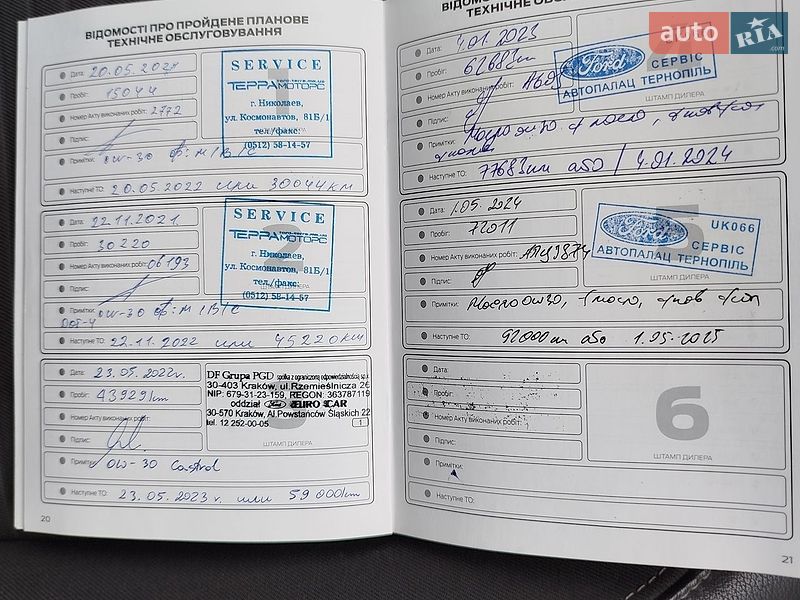 ВІДОМОСТІ ПРО ПРОЙДЕНЕ ПЛАНОВЕ
ТЕХНІЧНЕ ОБСЛУГОВУВАННЯ
Дата: 20.05.2021
Пробіг: 15044
Номер Акту виконаних робіт: 2772
Підпис:
Примітки: 0W-30 ф: м/в/с
Наступне ТО: 20.05.2022 или 30044 км
1
SERVICE
ТЕРРАМОТОРС
г. Николаев,
ул. Космонавтов, 81Б/1
тел./факс:
(0512) 58-14-57
Дата: 22.11.2021.
Пробіг: 30220
Номер Акту виконаних робіт: 06193
Підпис:
Примітки: 0W-30 ф: м/в/с
DOT-4
Наступне ТО: 22.11.2022 или 45220 км
2
SERVICE
ТЕРРАМОТОРС
г. Николаев,
ул. Космонавтов, 81Б/1
тел./факс:
(0512) 58-14-57
ШТАМП ДИЛЕРА
Дата: 23.05.2022г.
Пробіг: 43929 km
Номер Акту виконаних робіт:
Підпис:
Примітки: 0W-30 Castrol
Наступне ТО: 23.05.2023 г. или 59000 km
DF Grupa PGD spółka z ograniczoną odpowiedzialnością sp.k
30-403 Kraków, ul.Rzemieślnicza 26
NIP: 679-31-23-159, REGON: 363787119
oddział EURO CAR
30-570 Kraków, Al.Powstańców Śląskich 22
tel. 12 252-00-05
1
ШТАМП ДИЛЕРА
20
ВІДОМО
ТЕХНІЧНЕ ОБСЛУГОВУВАННЯ
Дата: 4.01.2023
Пробіг: 62683 km
Номер Акту виконаних робіт:
Підпис:
Примітки:
Наступне ТО: 77683 km або 14.01.2024
Ford
СЕРВІС
АВТОПАЛАЦ ТЕРНОПІЛЬ
ШТАМП ДИЛЕРА
Дата: 1.05.2024
Пробіг: 72011
Номер Акту виконаних робіт:
Підпис:
Примітки:
Наступне ТО: 92000 km або 1.05.2025
5
Ford
UK066
СЕРВІС
АВТОПАЛАЦ ТЕРНОПІЛЬ
ШТАМП ДИЛЕРА
Дата:
Пробіг:
Номер Акту виконаних робіт:
Підпис:
Примітки:
Наступне ТО:
6
ШТАМП ДИЛЕРА
21
auto RIA.com